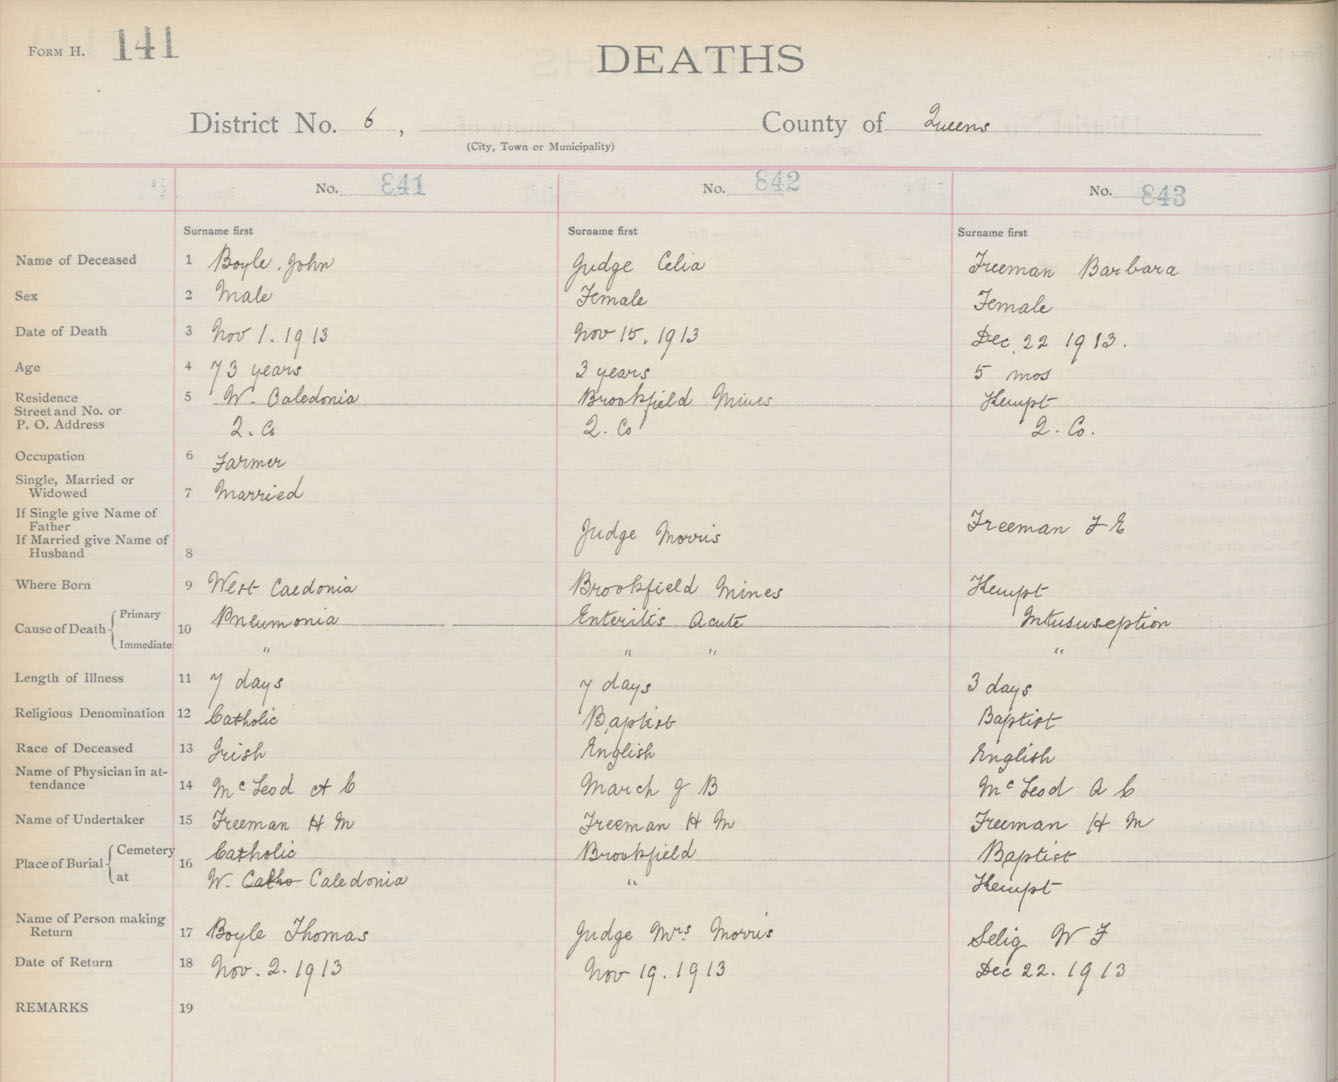 FORM H. 141
DEATHS
District No. 6, County of Queens
(City, Town or Municipality)
No. 841 No. 842 No. 843
Surname first Surname first Surname first
Name of Deceased 1 Boyle, John Judge Celia Freeman Barbara
Sex 2 Male Female Female
Date of Death 3 Nov 1. 1913 Nov 15. 1913 Dec. 22 1913.
Age 4 73 years 3 years 5 mos
Residence 5 W. Caledonia Brookfield Mines Kempt
Street and No. or
P. O. Address Q. Co Q. Co Q. Co.
Occupation 6 Farmer
Single, Married or
Widowed 7 Married
If Single give Name of
Father Judge Morris Freeman F E
If Married give Name of
Husband 8
Where Born 9 West Caedonia Brookfield Mines Kempt
Cause of Death Primary 10 Pneumonia Enteritis Acute Intususeption
Immediate " " " "
Length of Illness 11 7 days 7 days 3 days
Religious Denomination 12 Catholic Baptist Baptist
Race of Deceased 13 Irish English English
Name of Physician in at-
tendance 14 McLeod A C March J B McLeod A C
Name of Undertaker 15 Freeman H M Freeman H M Freeman H M
Place of Burial Cemetery 16 Catholic Brookfield Baptist
at W. Catho Caledonia " Kempt
Name of Person making
Return 17 Boyle Thomas Judge Mrs. Morris Selig W F
Date of Return 18 Nov. 2. 1913 Nov 19. 1913 Dec 22. 1913
REMARKS 19